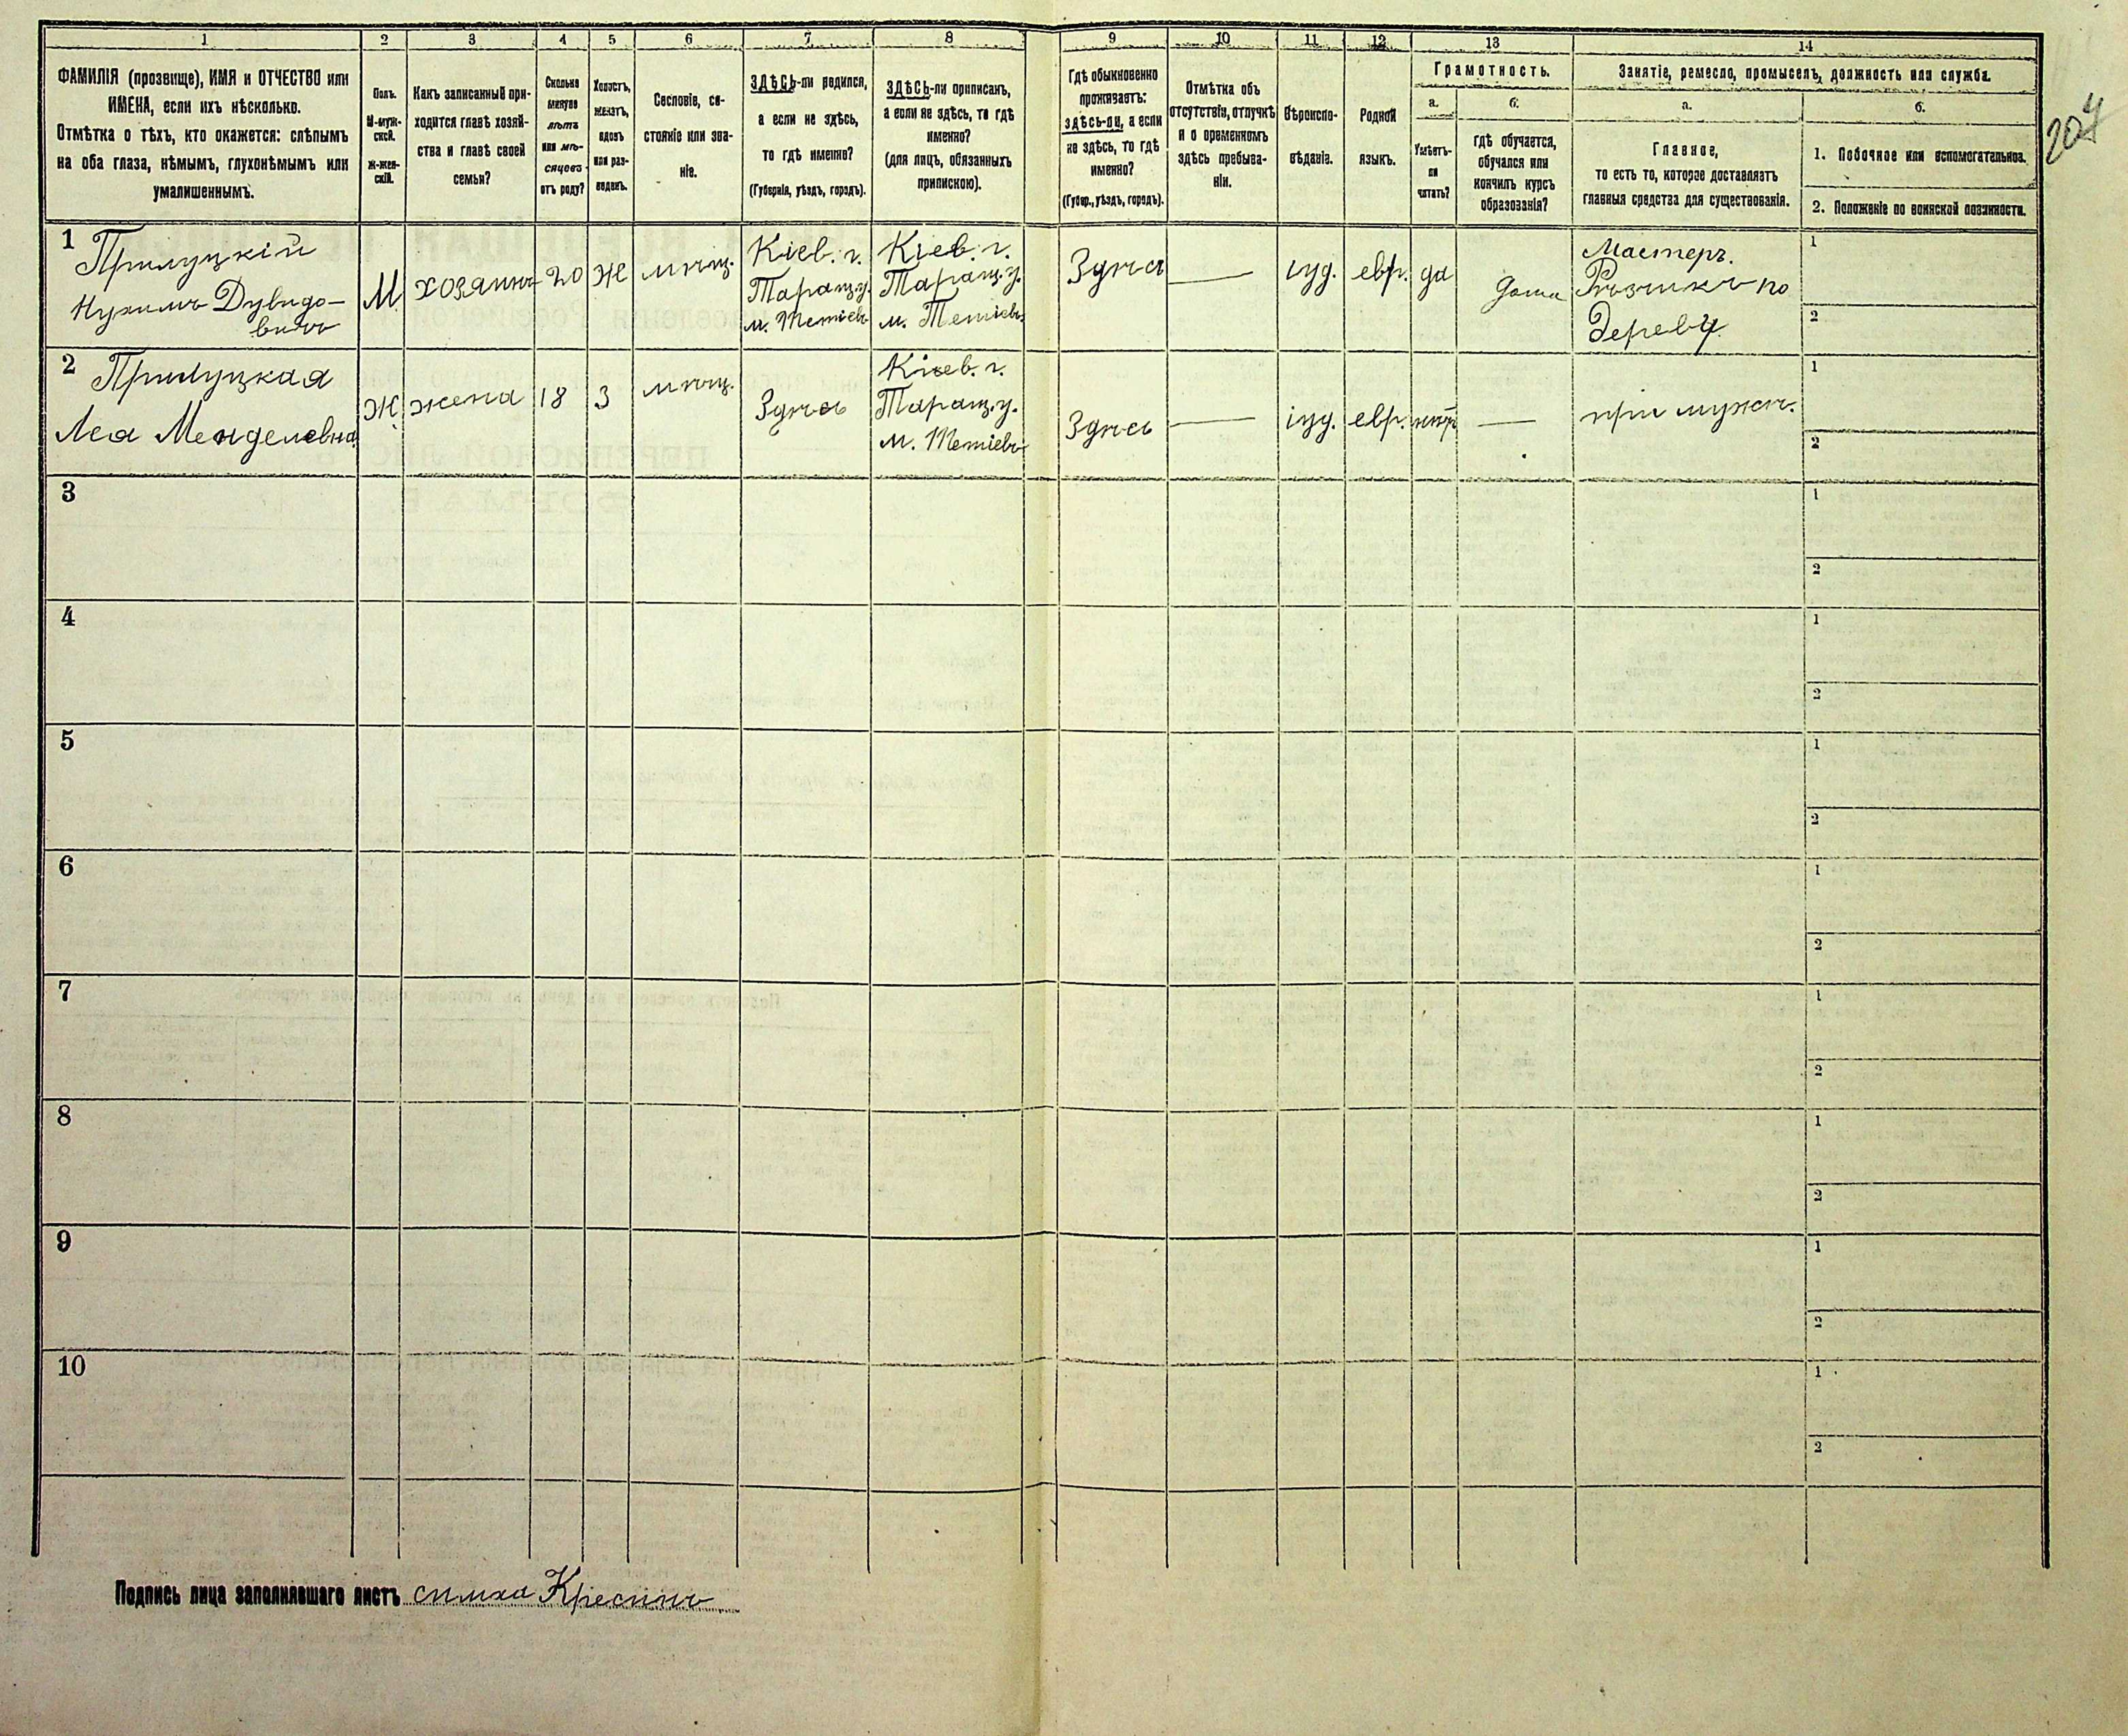 1
2
3
4
5
6
7
8
9
10
11
12
13
14
ФАМИЛІЯ (прозвище), ИМЯ и ОТЧЕСТВО или
ИМЕНА, если ихъ нѣсколько.
Отмѣтка о тѣхъ, кто окажется: слѣпымъ
на оба глаза, нѣмымъ, глухонѣмымъ или
умалишеннымъ.
Полъ.
М-муж-
ской.
Ж-жен-
скій.
Какъ записанный при-
ходится главѣ хозяй-
ства и главѣ своей
семьи?
Сколько
минуло
лѣтъ
или мѣ-
сяцевъ
отъ роду?
Холостъ,
женатъ,
вдовъ
или раз-
веденъ.
Сословіе, со-
стояніе или зва-
ніе.
ЗДѢСЬ-ли родился,
а если не здѣсь,
то гдѣ именно?
(Губернія, уѣздъ, городъ).
ЗДѢСЬ-ли приписанъ,
а если не здѣсь, то гдѣ
именно?
(для лицъ, обязанныхъ
припискою).
Гдѣ обыкновенно
проживаетъ:
здѣсь-ли, а если
не здѣсь, то гдѣ
именно?
(Губер., уѣздъ, городъ).
Отмѣтка объ
отсутствіи, отлучкѣ
и о временномъ
здѣсь пребыва-
ніи.
Вѣроиспо-
вѣданіе.
Родной
языкъ.
Грамотность.
а.
Умѣетъ-
ли
читать?
б.
гдѣ обучается,
обучался или
кончилъ курсъ
образованія?
Занятіе, ремесло, промыселъ, должность или служба.
а.
Главное,
то есть то, которое доставляетъ
главныя средства для существованія.
б.
1. Побочное или вспомогательное.
2. Положеніе по воинской повинности.
204
1
Прилуцкій
Нухимъ Дувидо-
вичъ
М
хозяинъ
20
Ж
мѣщ.
Кіев. г.
Таращ. у.
м. Тетіевъ
Кіев. г.
Таращ. у.
м. Тетіевъ
Здѣсь
—
іуд.
евр.
да
дома
Мастеръ.
Рѣзчикъ по
дереву.
1
2
2
Прилуцкая
Лея Менделевна
Ж.
жена
18
З
мѣщ.
Здѣсь
Кіев. г.
Таращ. у.
м. Тетіевъ
Здѣсь
—
іуд.
евр.
нѣтъ
—
при мужѣ.
1
2
3
1
2
4
1
2
5
1
2
6
1
2
7
1
2
8
1
2
9
1
2
10
1
2
Подпись лица заполнявшаго листъ симха Кресинъ